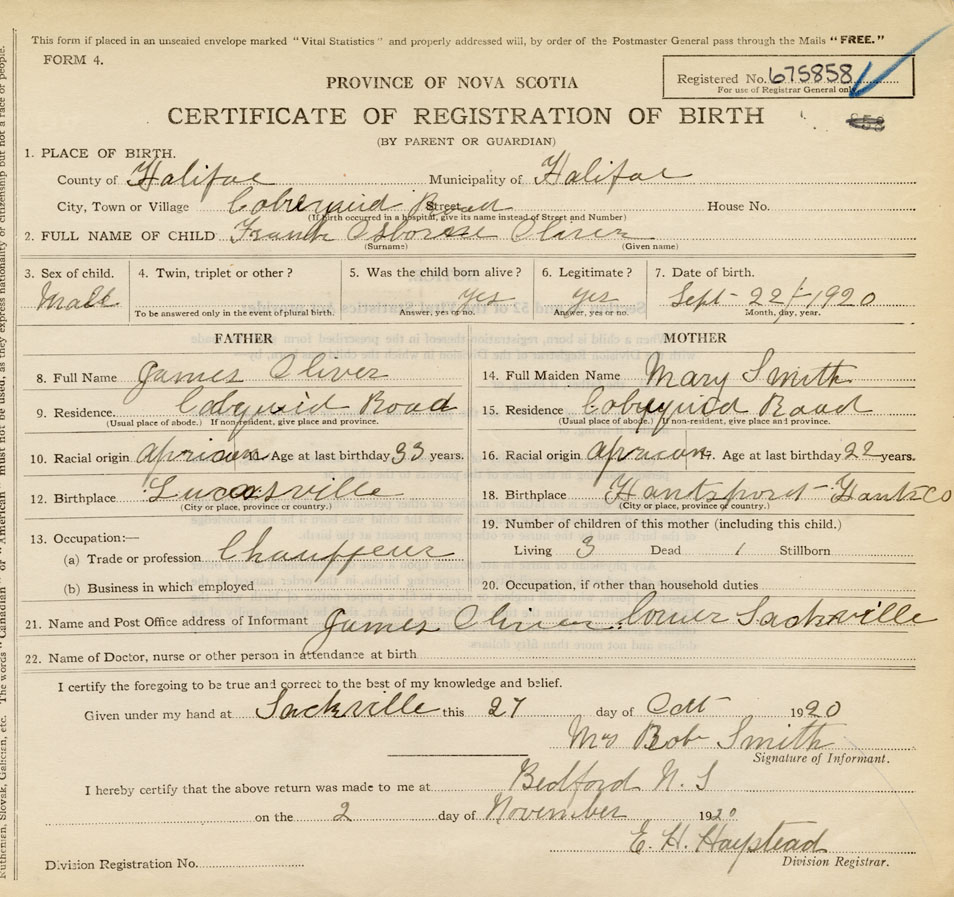 This form if placed in an unsealed envelope marked "Vital Statistics" and properly addressed will, by order of the Postmaster General pass through the Mails "FREE."
FORM 4.
Registered No. 675858
For use of Registrar General only
PROVINCE OF NOVA SCOTIA
CERTIFICATE OF REGISTRATION OF BIRTH
(BY PARENT OR GUARDIAN)
1. PLACE OF BIRTH.
County of Halifax Municipality of Halifax
City, Town or Village Cobequid Road Street House No.
(If birth occurred in a hospital, give its name instead of Street and Number)
2. FULL NAME OF CHILD Frank Osborne Oliver
(Surname) (Given name)
3. Sex of child. 4. Twin, triplet or other? 5. Was the child born alive? 6. Legitimate? 7. Date of birth.
Male yes yes Sept - 22 / - 1920
To be answered only in the event of plural birth. Answer, yes or no. Answer, yes or no. Month, day, year.
FATHER MOTHER
8. Full Name James Oliver 14. Full Maiden Name Mary Smith
9. Residence. Cobequid Road 15. Residence Cobequid Road
(Usual place of abode.) If non-resident, give place and province. (Usual place of abode.) If non-resident, give place and province.
10. Racial origin African 11. Age at last birthday 33 years. 16. Racial origin African 17. Age at last birthday 22 years.
12. Birthplace Lucasville 18. Birthplace Hantsport - Hants Co
(City or place, province or country.) (City or place, province or country.)
13. Occupation:— 19. Number of children of this mother (including this child.)
(a) Trade or profession Chauffeur Living 3 Dead 1 Stillborn
(b) Business in which employed 20. Occupation, if other than household duties
21. Name and Post Office address of Informant James Oliver Lower Sackville
22. Name of Doctor, nurse or other person in attendance at birth
I certify the foregoing to be true and correct to the best of my knowledge and belief.
Given under my hand at Sackville this 27 day of Oct 1920
Mrs Bob Smith
Signature of Informant.
I hereby certify that the above return was made to me at Bedford N. S
on the 2 day of November 1920
E. H. Haystead
Division Registration No. Division Registrar.